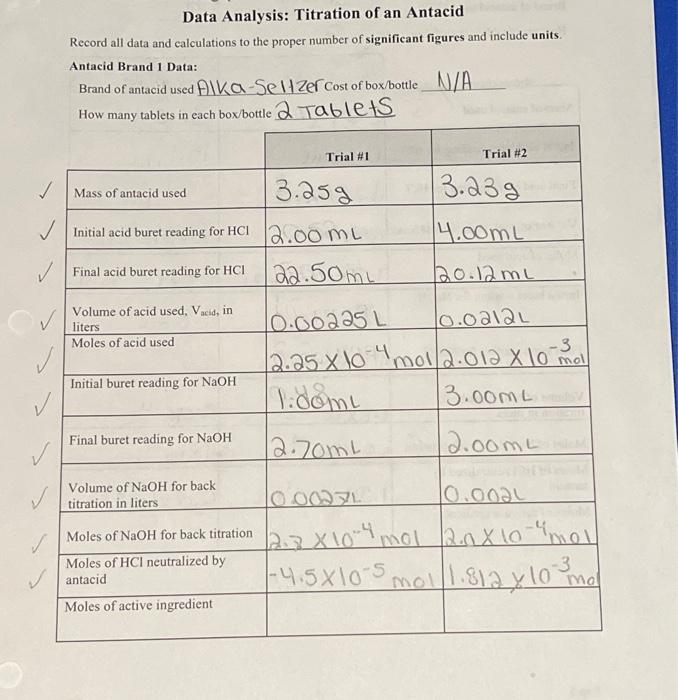 Data Analysis: Titration of an Antacid
Record all data and calculations to the proper number of significant figures and include units.
Antacid Brand 1 Data:
Brand of antacid used Alka-Seltzer Cost of box/bottle N/A
How many tablets in each box/bottle 2 Tablets
Trial #1 Trial #2
✓ Mass of antacid used 3.25g 3.23g
✓ Initial acid buret reading for HCl 2.00mL 4.00mL
✓ Final acid buret reading for HCl 22.50mL 20.12mL
Volume of acid used, Vacid, in
✓ liters 0.00225L 0.0212L
✓ Moles of acid used 2.25 X 10⁻⁴ mol 2.012 X 10⁻³ mol
✓ Initial buret reading for NaOH 3.00mL
✓ Final buret reading for NaOH 2.70mL 2.00mL
Volume of NaOH for back
✓ titration in liters 0.002L
✓ Moles of NaOH for back titration X10⁻⁴ mol X10⁻⁴mol
Moles of HCl neutralized by
✓ antacid -4.5X10⁻⁵ mol 1.812 X 10⁻³ mol
Moles of active ingredient